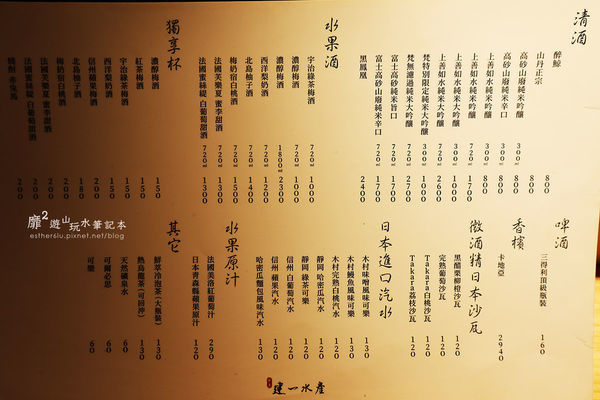 清酒
醉鯨
山丹正宗 800
高砂山廢純米吟釀 300ml 800
高砂山廢純米辛口 300ml 800
上善如水純米吟釀 300ml 800
上善如水純米吟釀 720ml 1700
上善如水純米大吟釀 300ml 1000
上善如水純米大吟釀 720ml 2600
梵特別限定純米大吟釀 300ml 1000
梵無濾過純米大吟釀 720ml 2700
富士高砂山廢純米旨口 720ml 1700
富士高砂山廢純米辛口 720ml 1700
黑鳳凰 2400
水果酒
宇治綠茶梅酒 720ml 1000
濃醇梅酒 720ml 1000
濃醇梅酒 1800ml 2300
西洋梨酒 720ml 1200
北島柚子酒 720ml 1400
梅奶宿白桃酒 720ml 1500
法國芙樂夏 蜜李甜酒 720ml 1300
法國蜜絲緹 白葡萄甜酒 720ml 1300
獨享杯
濃醇梅酒 150
紅茶梅酒 150
宇治綠茶梅酒 150
西洋梨酒 150
信州蘋果梅酒 200
北島柚子酒 180
梅奶宿白桃酒 200
法國芙樂夏 蜜李甜酒 200
法國蜜絲緹 白葡萄甜酒 200
燒酎 赤兔馬 200
啤酒
三得利頂級瓶裝 160
香檳
卡地亞 2940
微酒精日本沙瓦
黑醋栗柳橙沙瓦 120
完熟葡萄沙瓦 120
Takara白桃沙瓦 120
Takara荔枝沙瓦 120
日本進口汽水
木村味噌風味可樂 130
木村鰻魚風味可樂 130
木村完熟白桃汽水 120
靜岡 哈密瓜汽水 120
靜岡 綠茶可樂 120
信州 白葡萄汽水 120
信州 蘋果汽水 120
哈密瓜麵包風味汽水 130
水果原汁
法國美洛紅葡萄汁 290
日本青森縣蘋果原汁 120
其它
鮮萃冷泡茶(大瓶裝) 130
熱烏龍茶(可回沖) 130
天然礦泉水 60
可爾必思 60
可樂 60
建一水產
靡²遊山玩水筆記本
esther6lu.pixnet.net/blog